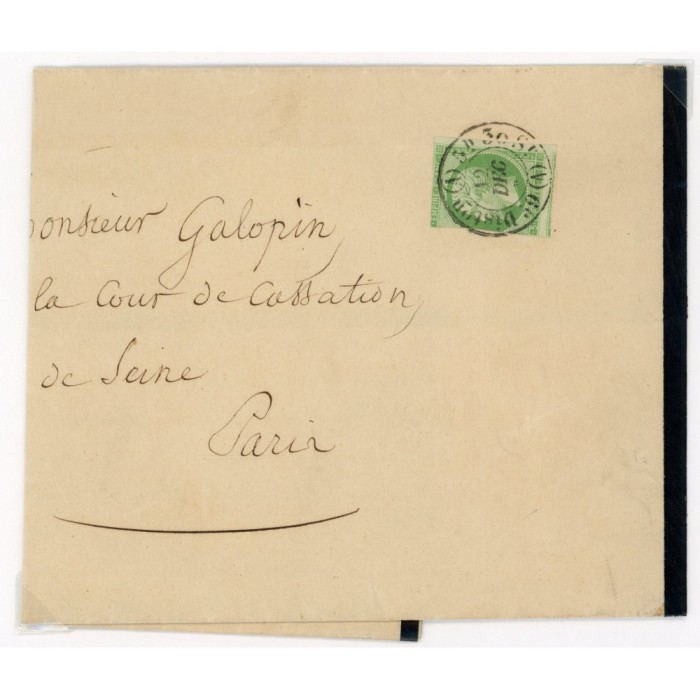 onsieur Galopin,
la Cour de Cassation,
de Seine
Paris
12
DEC